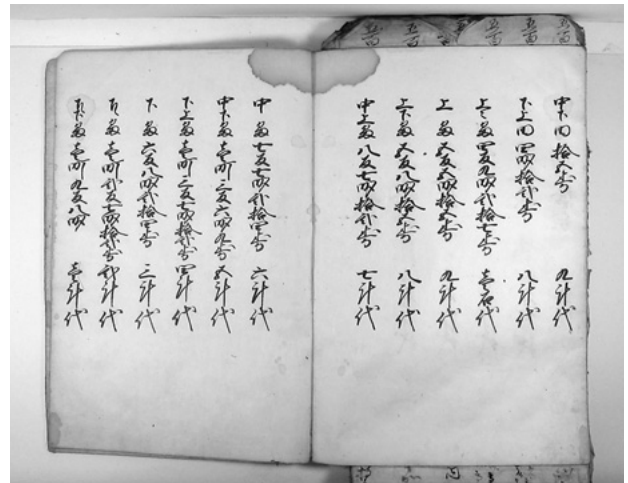 中下田 拾五歩 九斗代
下上田 四畝拾弐歩 八斗代
上々畠 四反九畝弐拾七歩 壱石代
上畠 五反五畝拾五歩 九斗代
上下畠 五反八畝拾五歩 八斗代
中上畠 八反七畝拾弐歩 七斗代
中畠 七反七畝弐拾四歩 六斗代
中下畠 壱町三反六畝九歩 五斗代
下上畠 壱町三反七畝拾弐歩 四斗代
下畠 六反八畝弐拾四歩 三斗代
下々畠 壱町弐反七畝拾弐歩 弐斗代
下々下畠 壱町九反八畝 壱斗代